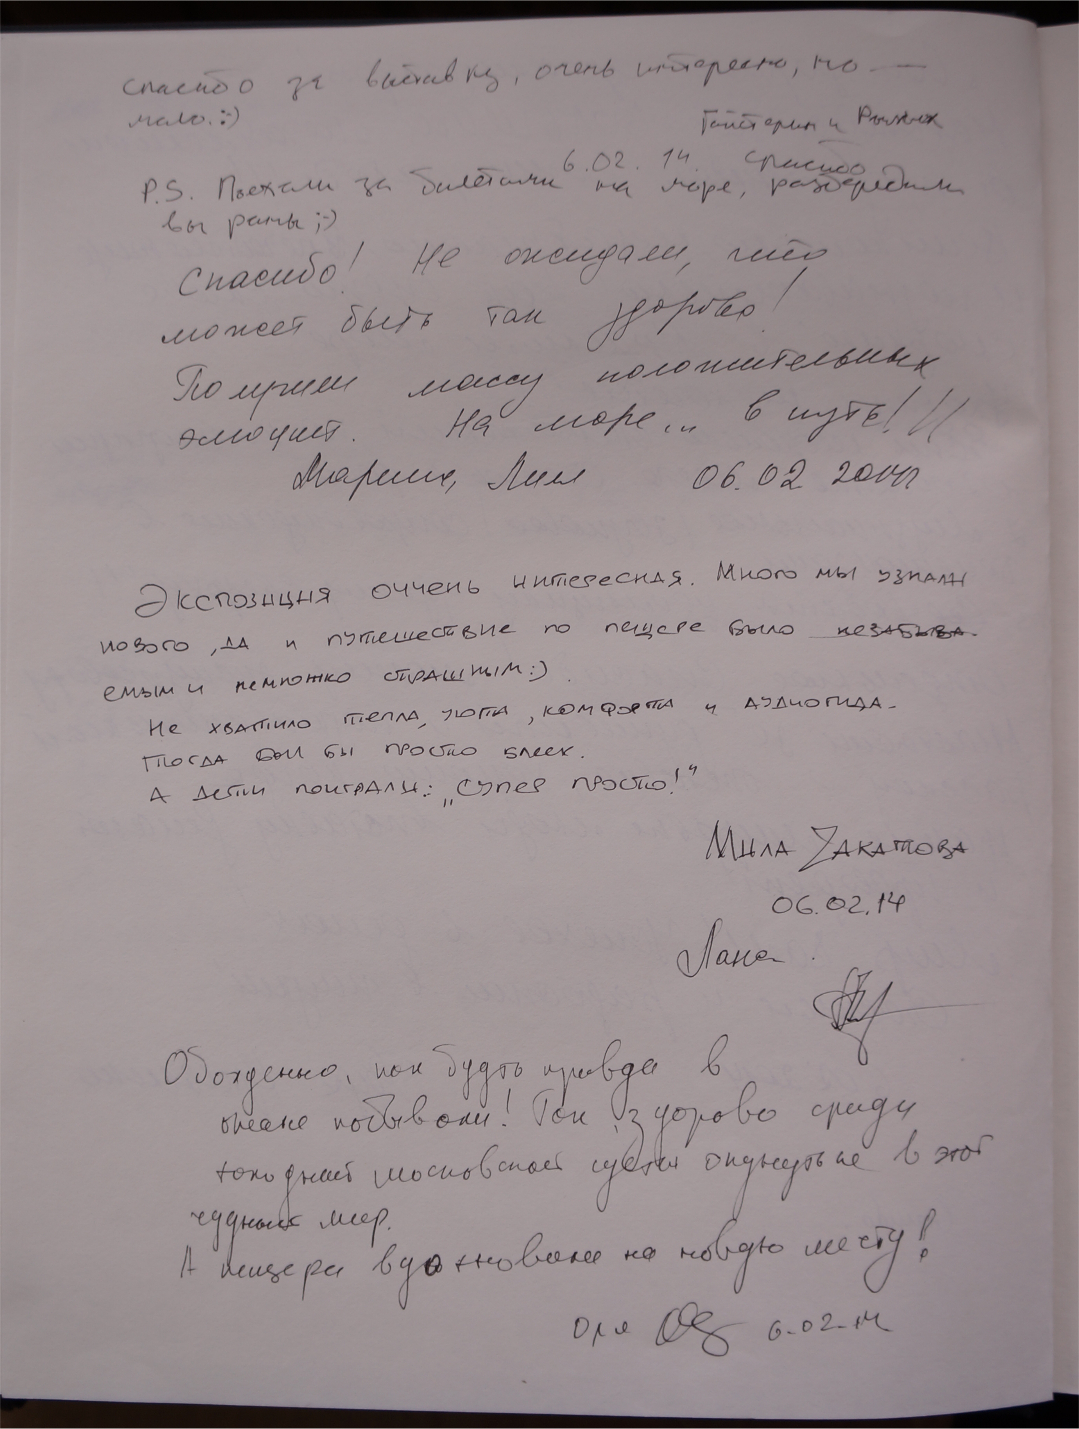 спасибо за выставку, очень интересно, но —
мало. :)
и Рыжик
6.02.14. спасибо
P.S. Поехали за билетами на море, разбередили
вы раны ;)
Спасибо! Не ожидали, что
может быть так здорово!
Получили массу положительных
эмоций. На море... в путь!!!
Марина, Лия 06.02 2014
Экспозиция оччень интересная. Много мы узнали
нового, да и путешествие по пещере было незабыва-
емым и немножко страшным :)
Не хватило тепла, уюта, комфорта и аудиогида.
Тогда был бы просто блеск.
А дети поиграли: „Супер просто!"
Мила Закатова
06.02.14
Лана
Обалденно, как будто правда в
океане побывали! Так здорово среди
холодной московской суеты окунуться в этот
чудный мир.
А пещера вдохновила на новую мечту!
Оля 6.02.14